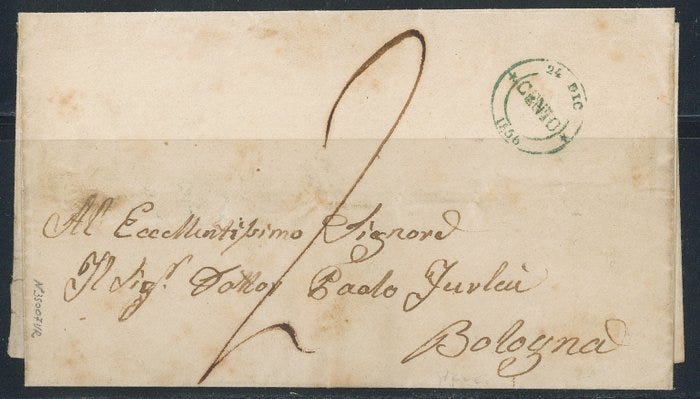 24 DIC
CENTO
1856
2
Al Eccellentissimo Signore
Il Sigr. Dottor Paolo
Bologna